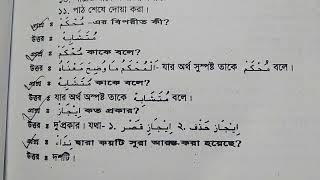 ১১. পাঠ শেষে দোয়া করা।
প্রশ্ন ঃ مُحْكَمٌ -এর বিপরীত কী?
উত্তর ঃ مُتَشَابِهٌ
প্রশ্ন ঃ مُحْكَمٌ কাকে বলে?
উত্তর ঃ اَلْمُحْكَمُ مَا وَضَحَ مَعْنَاهُ- যার অর্থ সুস্পষ্ট তাকে مُحْكَمٌ বলে।
প্রশ্ন ঃ مُتَشَابِهٌ কাকে বলে?
উত্তর ঃ যার অর্থ অস্পষ্ট তাকে مُتَشَابِهٌ বলে।
প্রশ্ন ঃ إِيْجَازٌ কত প্রকার?
উত্তর ঃ দু'প্রকার। যথা- ১. إِيْجَازُ قَصْرٍ ২. إِيْجَازُ حَذْفٍ
প্রশ্ন ঃ نِدَاءٌ দ্বারা কয়টি সূরা আরম্ভ করা হয়েছে?
উত্তর ঃ দশটি।